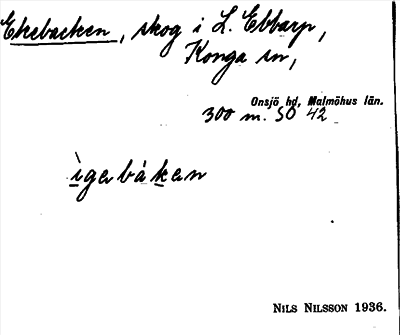 Ekebacken, skog i L. Ebbarp,
Konga sn,
Onsjö hd, Malmöhus län.
300 m. SO 42
ìgabàkan
NILS NILSSON 1936.